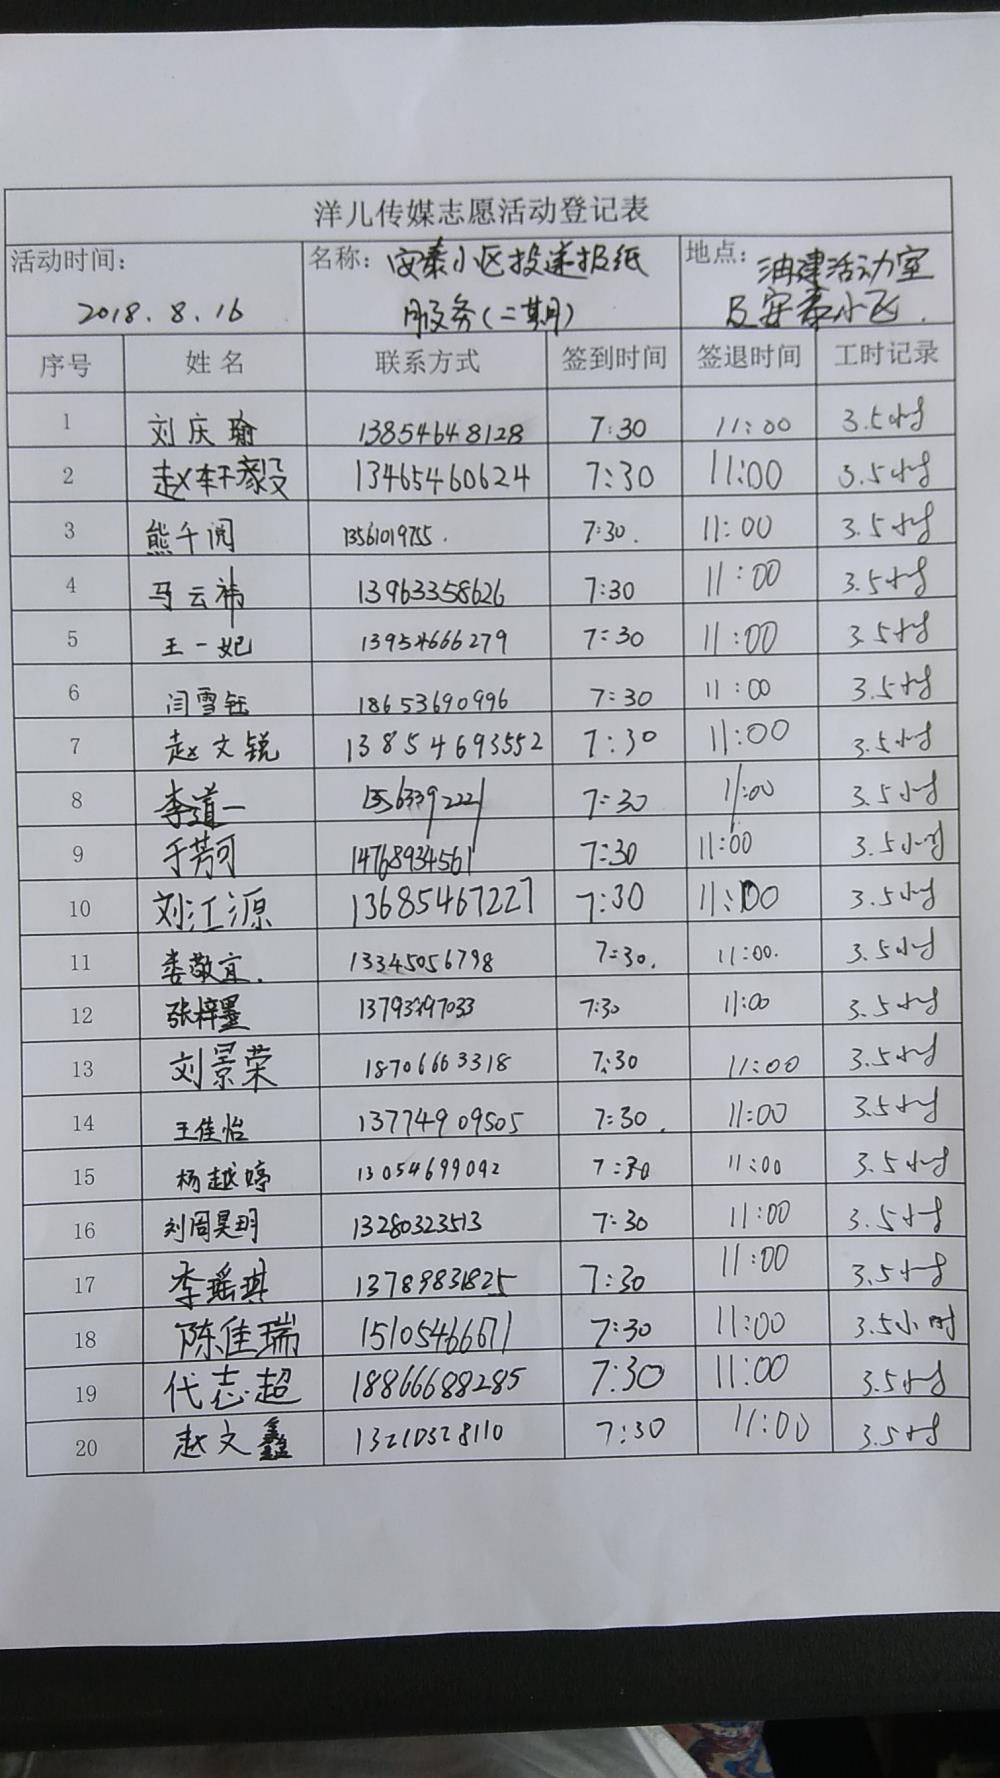 洋儿传媒志愿活动登记表
活动时间: 2018.8.16 名称: 安泰小区投递报纸服务(二期) 地点: 油建活动室及安泰小区.
序号 姓名 联系方式 签到时间 签退时间 工时记录
1 刘庆瑜 13854648128 7:30 11:00 3.5小时
2 赵轩毅 13465460624 7:30 11:00 3.5小时
3 熊千阅 13561019755. 7:30. 11:00 3.5小时
4 马云祎 13963358626 7:30 11:00 3.5小时
5 王一妃 13954666279 7:30 11:00 3.5小时
6 闫雪钰 18653690996 7:30 11:00 3.5小时
7 赵文锐 13854693552 7:30 11:00 3.5小时
8 李道一 13563392221 7:30 11:00 3.5小时
9 于芳可 14768934561 7:30 11:00 3.5小时
10 刘江源 13685467227 7:30 11:00 3.5小时
11 娄敬宜. 13345056798 7:30. 11:00. 3.5小时
12 张梓墨 7:30 11:00 3.5小时
13 刘景荣 18706663318 7:30 11:00 3.5小时
14 王佳怡 13774909505 7:30. 11:00 3.5小时
15 杨越婷 13054699092 7:30 11:00 3.5小时
16 刘周昊玥 13280323513 7:30 11:00 3.5小时
17 李瑶琪 13789831825 7:30 11:00 3.5小时
18 陈佳瑞 15105466671 7:30 11:00 3.5小时
19 代志超 18866688285 7:30 11:00 3.5小时
20 赵文鑫 13210328110 7:30 11:00 3.5小时